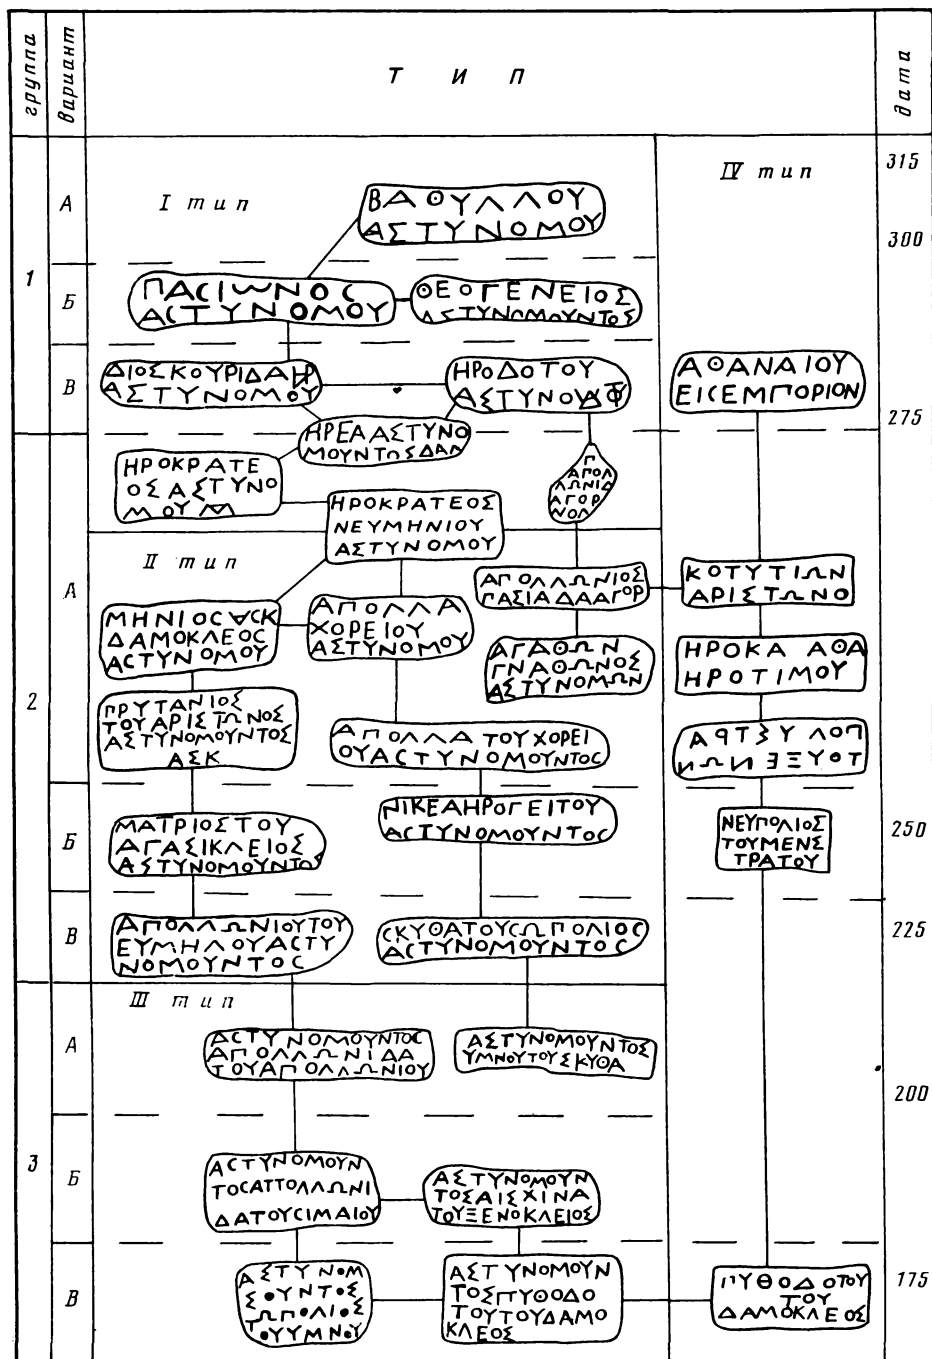 группа
вариант
Т И П
дата
1
2
3
А
Б
В
А
Б
В
А
Б
В
315
300
275
250
225
200
175
I тип
ΒΑΘΥΛΛΟΥ
ΑΣΤΥΝΟΜΟΥ
ΠΑCΙΩΝΟC
ΑCΤΥΝΟΜΟΥ
ΘΕΟΓΕΝΕΙΟΣ
ΑΣΤΥΝΟΜΟΥΝΤΟΣ
ΔΙΟΣΚΟΥΡΙΔΑΗΡ
ΑΣΤΥΝΟΜΟΥ
ΗΡΟΔΟΤΟΥ
ΑΣΤΥΝΟΥ
ΗΡΕΑΑΣΤΥΝΟ
ΜΟΥΝΤΩΣΔΑΛ
ΗΡΟΚΡΑΤΕ
ΟΣΑΣΤΥΝΟ
ΜΟΥ
ΗΡΟΚΡΑΤΕΟΣ
ΝΕΥΜΗΝΙΟΥ
ΑΣΤΥΝΟΜΟΥ
Γ
ΑΠΟΛ
ΛΩΝΙΔ
ΑΓΟΡ
ΝΟΛ
II тип
ΜΗΝΙΟC ΑCΚ
ΔΑΜΟΚΛΕΟC
ΑCΤΥΝΟΜΟΥ
ΑΠΟΛΛΑ
ΧΟΡΕΙΟΥ
ΑΣΤΥΝΟΜΟΥ
ΑΠΟΛΛΩΝΙΟΣ
ΠΑΣΙΑΔΑΑΓΟΡ
ΑΓΑΘΩΝ
ΓΝΑΘΩΝΟΣ
ΑΣΤΥΝΟΜΩΝ
ΠΡΥΤΑΝΙΟΣ
ΤΟΥΑΡΙΣΤΩΝΟΣ
ΑΣΤΥΝΟΜΟΥΝΤΟΣ
ΑΣΚ
ΑΠΟΛΛΑ ΤΟΥΧΟΡΕΙ
ΟΥΑCΤΥΝΟΜΟΥΝΤΟC
ΜΑΤΡΙΟΣΤΟΥ
ΑΓΑΣΙΚΛΕΙΟΣ
ΑΣΤΥΝΟΜΟΥΝΤΟΣ
ΝΙΚΕΑΗΡΟΓΕΙΤΟΥ
ΑCΤΥΝΟΜΟΥΝΤΟC
ΑΠΟΛΛΩΝΙΟΥΤΟΥ
ΕΥΜΗΛΟΥΑCΤΥ
ΝΟΜΟΥΝΤΟC
CΚΥΘΑΤΟΥCΩΠΟΛΙΟC
ΑCΤΥΝΟΜΟΥΝΤΟC
III тип
ΑCΤΥΝΟΜΟΥΝΤΟC
ΑΠΟΛΛΩΝΙΔΑ
ΤΟΥΑΠΟΛΛΩΝΙΟΥ
ΑΣΤΥΝΟΜΟΥΝΤΟΣ
ΥΜΝΟΥΤΟΥΣΚΥΘΑ
ΑCΤΥΝΟΜΟΥΝ
ΤΟCΑΠΟΛΛΩΝΙ
ΔΑΤΟΥCΙΜΑΙΟΥ
ΑΣΤΥΝΟΜΟΥΝ
ΤΟΣΑΙΣΧΙΝΑ
ΤΟΥΞΕΝΟΚΛΕΙΟΣ
ΑΣΤΥΝΟΜ
ΣΟΥΝΤΟΣ
ΩΠΟΛΙΟΣ
ΤΟΥΥΜΝΟΥ
ΑΣΤΥΝΟΜΟΥΝ
ΤΟΣΠΥΘΟΔΟ
ΤΟΥΤΟΥΔΑΜΟ
ΚΛΕΟΣ
IV тип
ΑΘΑΝΑΙΟΥ
ΕΙCΕΜΠΟΡΙΟΝ
ΚΟΤΥΤΙΩΝ
ΑΡΙΣΤΩΝΟ
ΗΡΟΚΑ ΑΘΑ
ΗΡΟΤΙΜΟΥ
ΝΕΥΠΟΛΙΟΣ
ΤΟΥΜΕΝΣ
ΤΡΑΤΟΥ
ΠΥΘΟΔΟΤΟΥ
ΤΟΥ
ΔΑΜΟΚΛΕΟΣ